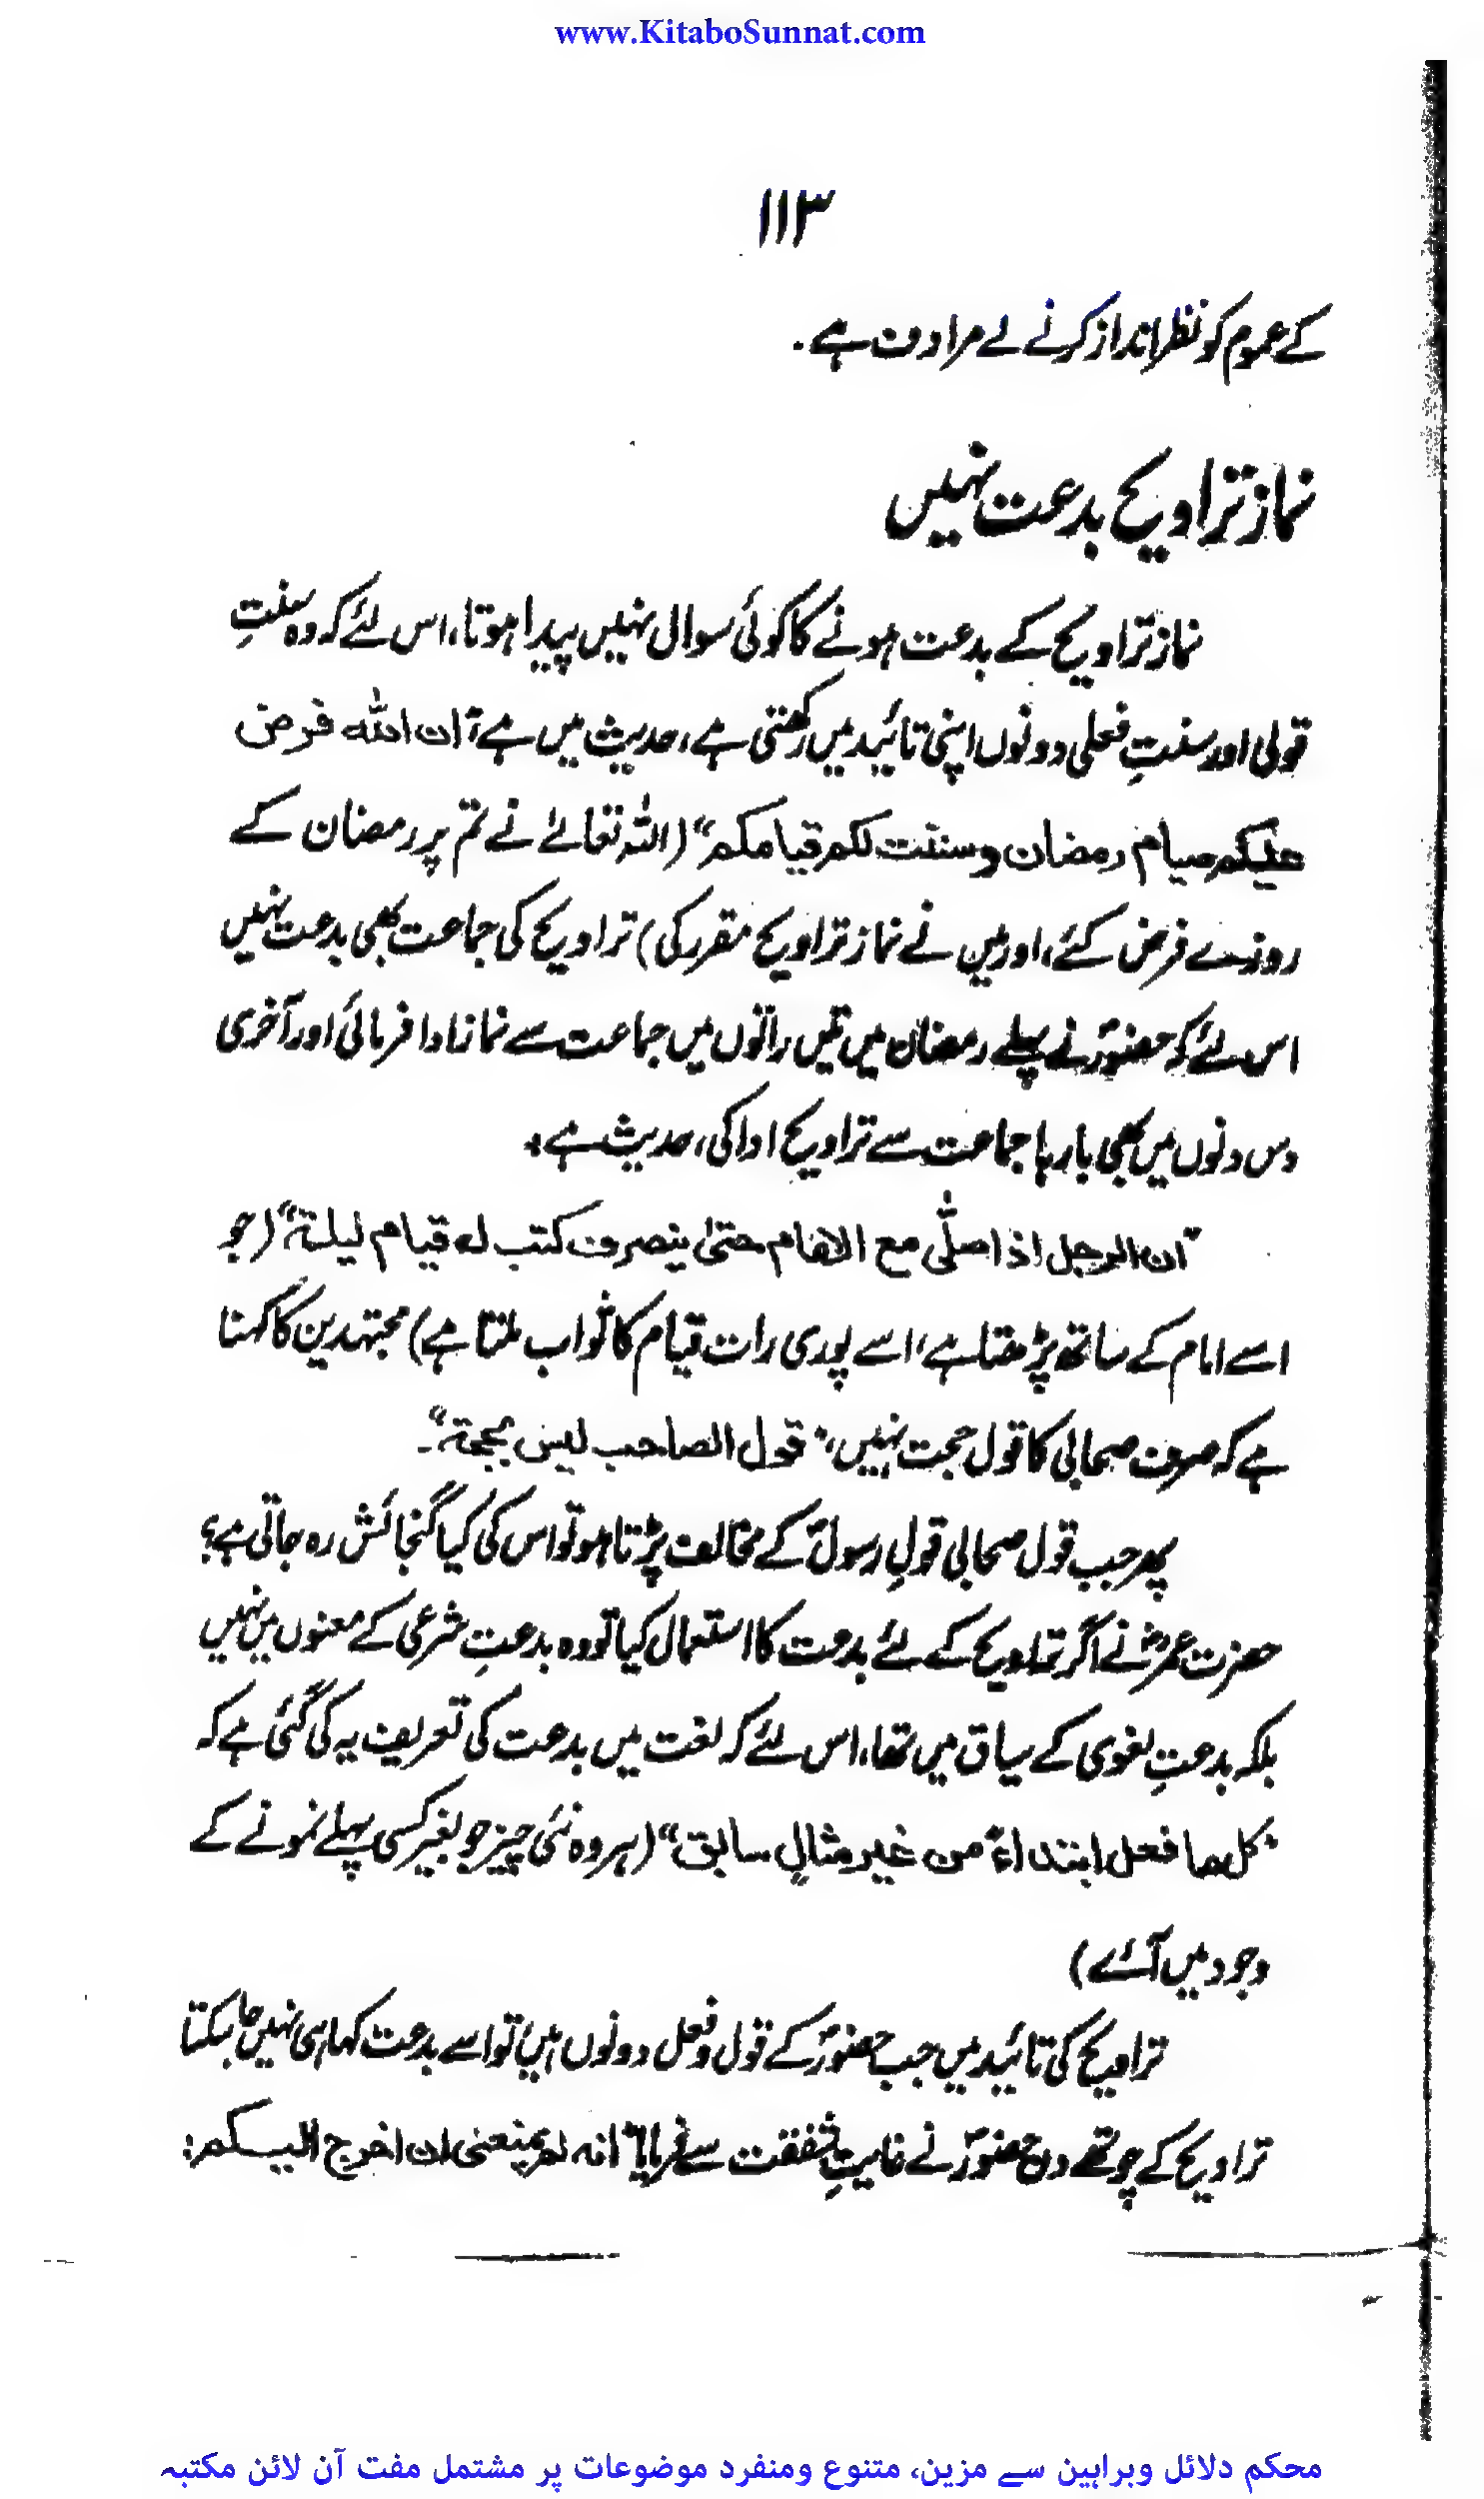 www.KitaboSunnat.com
۱۱۳
کے عموم کو نظرانداز کرنے کے مرادف ہے۔
نماز تراویح بدعت نہیں
نماز تراویح کے بدعت ہونے کا کوئی سوال نہیں پیدا ہوتا، اس لئے کہ وہ سنتِ
قولی اور سنتِ فعلی دونوں اپنی تائید میں رکھتی ہے، حدیث میں ہے "ان اللہ فرض
علیکم صیام رمضان وسننت لکم قیامکم" (اللہ تعالےٰ نے تم پر رمضان کے
روزے فرض کئے، اور میں نے نماز تراویح مقرر کی) تراویح کی جماعت بھی بدعت نہیں
اس لئے کہ حضورؐ نے پہلے رمضان میں تین راتوں میں جماعت سے نماز ادا فرمائی اور آخری
دس دنوں میں بھی بارہا جماعت سے تراویح ادا کی، حدیث ہے۔
"ان الرجل اذا صلّٰی مع الامام حتیٰ ینصرف کتب لہ قیام لیلۃ" (جو
اسے امام کے ساتھ پڑھتا ہے، اسے پوری رات قیام کا ثواب ملتا ہے) مجتہدین کا کہنا
ہے کہ صرف صحابی کا قول حجت نہیں، "قول الصاحب لیس بحجۃ"۔
پھر جب قول صحابی قولِ رسولؐ کے مخالف پڑتا ہو تو اس کی کیا گنجائش رہ جاتی ہے؟
حضرت عمرؓ نے اگر تراویح کے لئے بدعت کا استعمال کیا تو وہ بدعتِ شرعی کے معنوں میں نہیں
بلکہ بدعتِ لغوی کے سیاق میں تھا، اس لئے کہ لغت میں بدعت کی تعریف یہ کی گئی ہے کہ
"کل ما فعل ابتداءً من غیر مثالٍ سابق" (ہر وہ نئی چیز جو بغیر کسی پہلے نمونے کے
وجود میں آئے)
تراویح کی تائید میں جب حضورؐ کے قول و فعل دونوں ہیں تو اسے بدعت کہا ہی نہیں جا سکتا
تراویح کے چوتھے دن حضورؐ نے غایتِ شفقت سے فرمایا "انہ لم یمنعنی ان اخرج الیکم:
محکم دلائل وبراہین سے مزین، متنوع ومنفرد موضوعات پر مشتمل مفت آن لائن مکتبہ